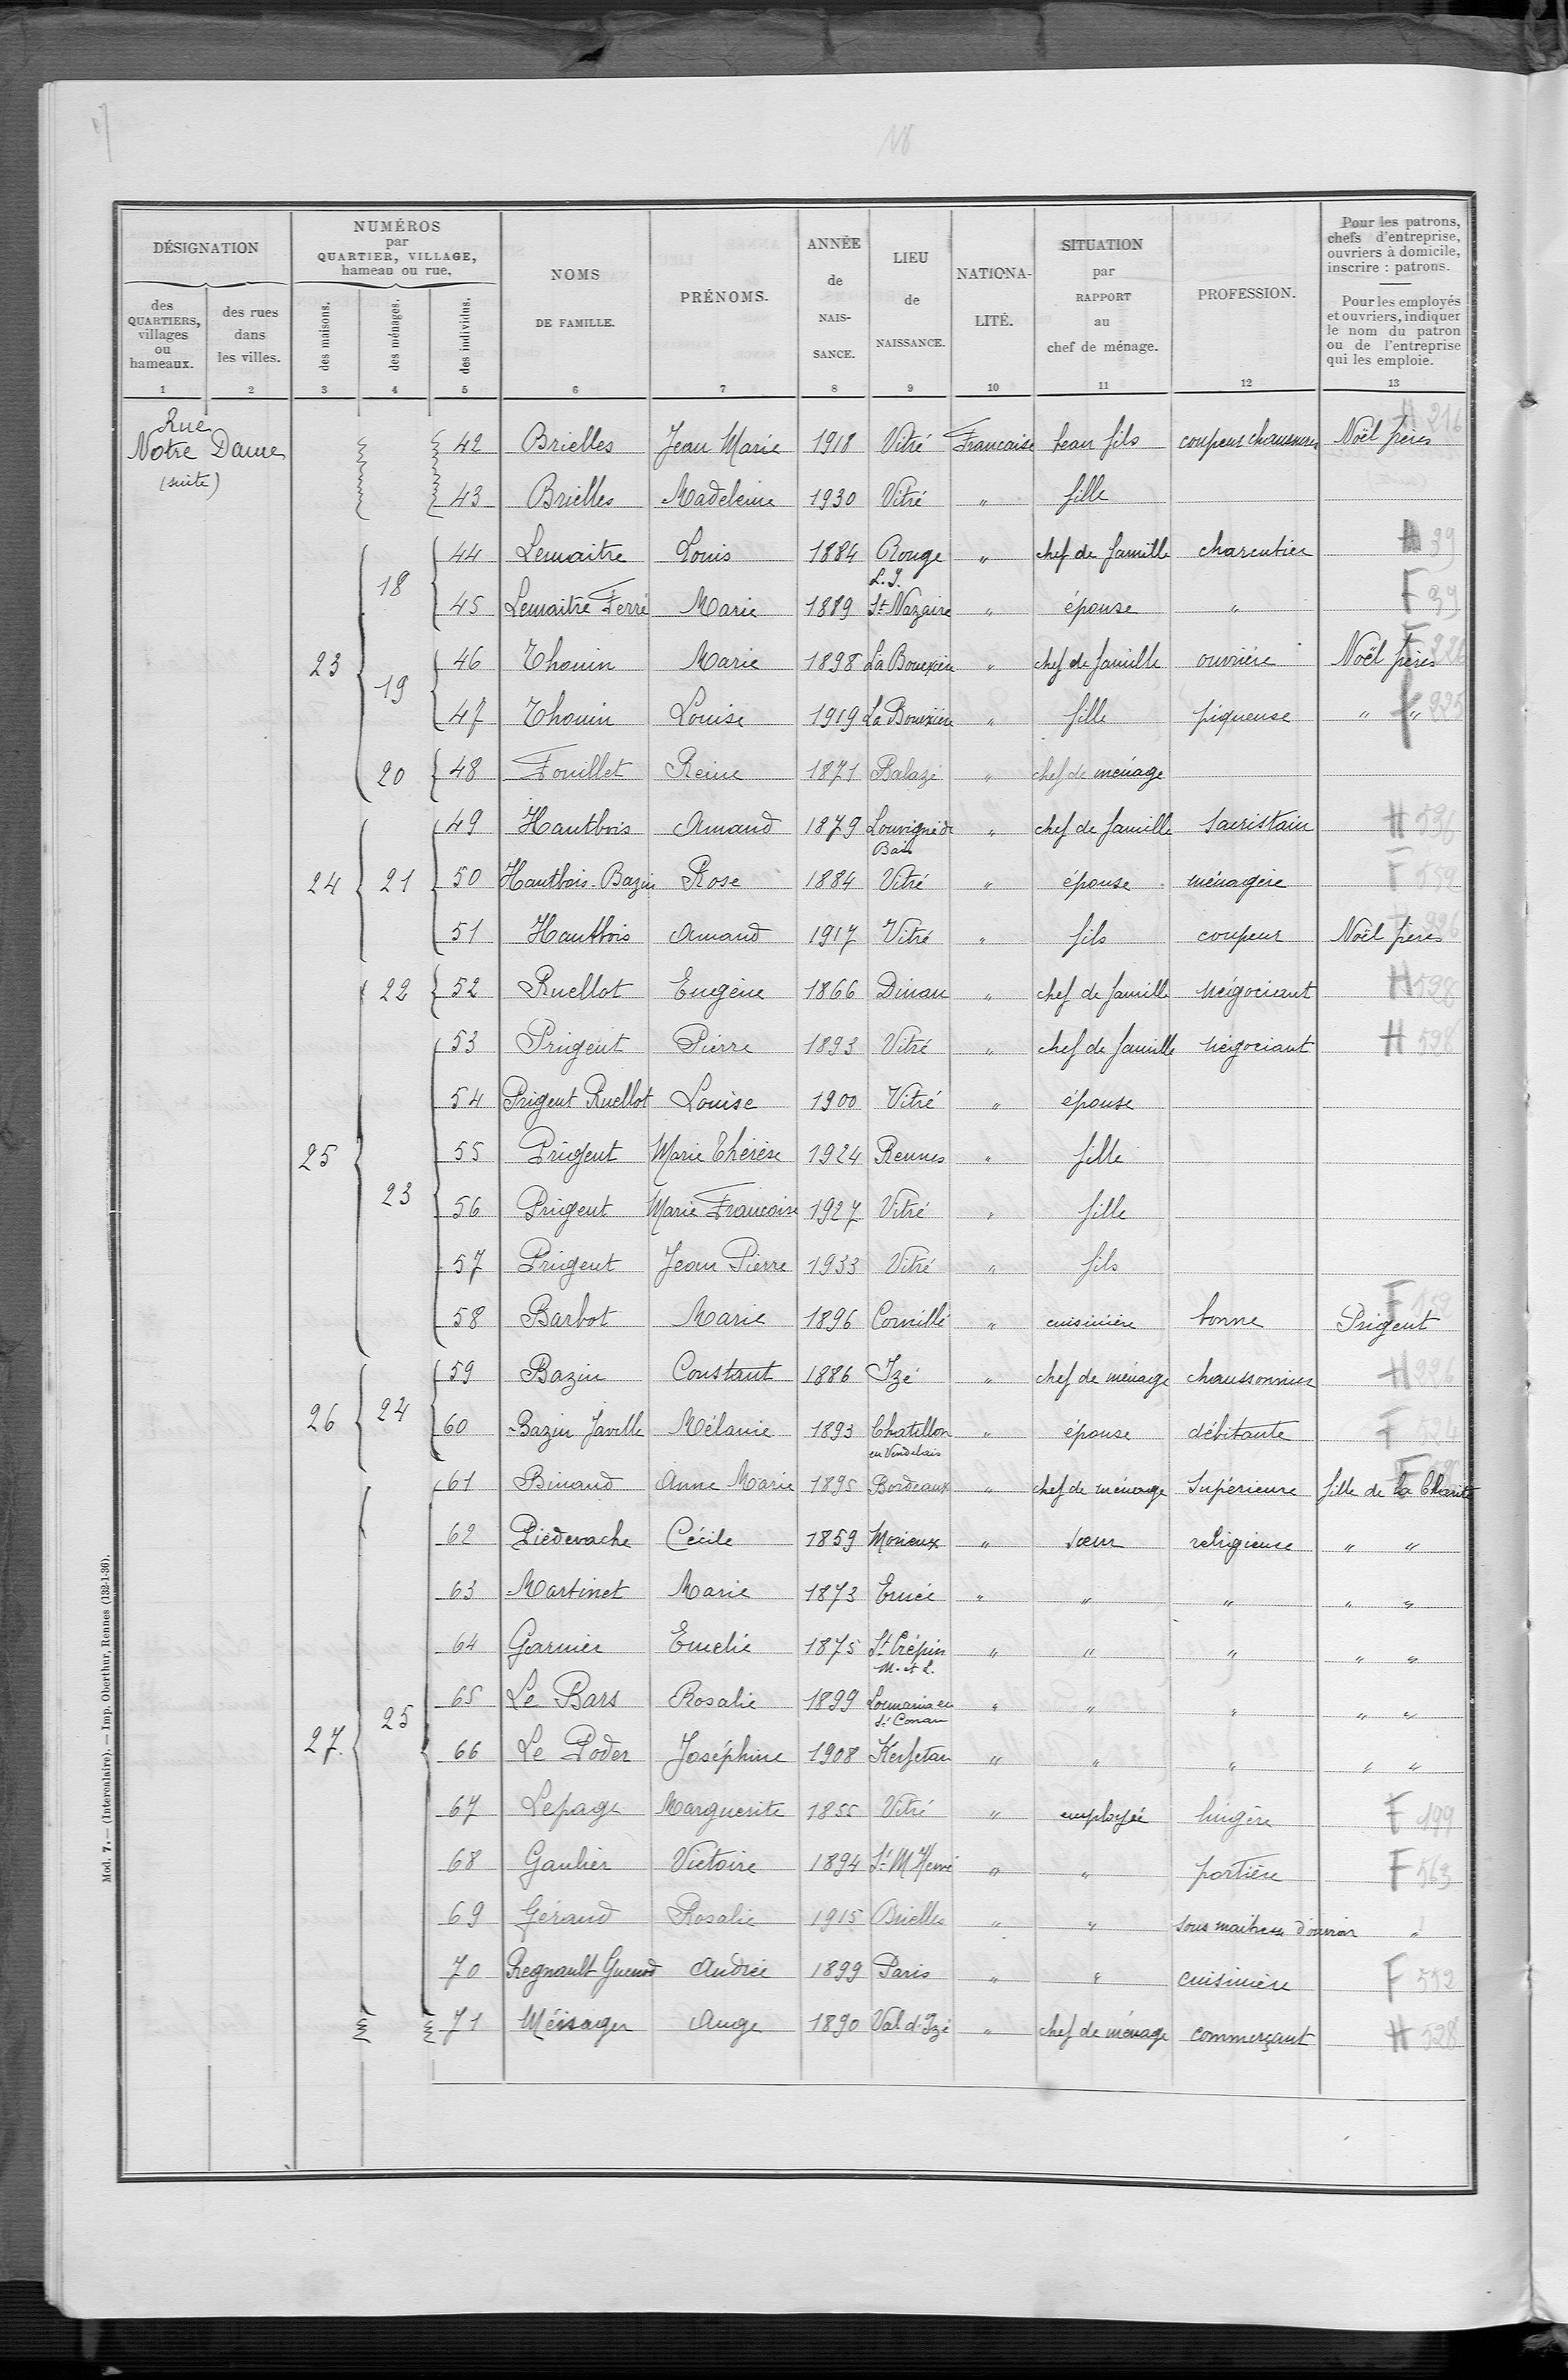 DÉSIGNATION
des QUARTIERS, villages ou hameaux.
des rues dans les villes.
NUMÉROS par QUARTIER, VILLAGE, hameau ou rue,
des maisons.
des ménages.
des individus.
NOMS DE FAMILLE.
PRÉNOMS.
ANNÉE de NAIS-SANCE.
LIEU de NAISSANCE.
NATIONA-LITÉ.
SITUATION par RAPPORT au chef de ménage.
PROFESSION.
Pour les patrons, chefs d'entreprise, ouvriers à domicile, inscrire : patrons.
Pour les employés et ouvriers, indiquer le nom du patron ou de l'entreprise qui les emploie.
1 2 3 4 5 6 7 8 9 10 11 12 13
Rue Notre Dame (suite)
42 Brielles Jean Marie 1918 Vitré Francaise beau fils coupeur chaussures Noël frères H 216
43 Brielles Madeleine 1930 Vitré " fille
18 44 Lemaitre Louis 1884 Rouge L.I. " chef de famille charcutier H 39
45 Lemaitre Ferré Marie 1889 St Nazaire " épouse " F 39
23 19 46 Thouin Marie 1898 La Bouexière " chef de famille ouvrière Noël frères F 226
47 Thouin Louise 1919 La Bouexière " fille piqueuse " "
20 48 Fouillet Reine 1871 Balazé " chef de ménage
49 Hautbois Amand 1879 Louvigné de Bais " chef de famille sacristain H 596
24 21 50 Hautbois-Bazin Rose 1884 Vitré " épouse ménagère F 559
51 Hautbois Amand 1917 Vitré " fils coupeur Noël frères
22 52 Ruellot Eugène 1866 Dinan " chef de famille négociant H 598
53 Prigent Pierre 1893 Vitré " chef de famille négociant H 598
54 Prigent Ruellot Louise 1900 Vitré " épouse
25 55 Prigent Marie Thérèse 1924 Rennes " fille
23 56 Prigent Marie Francoise 1927 Vitré " fille
57 Prigent Jean Pierre 1933 Vitré " fils
58 Barbot Marie 1896 Cornillé " cuisinière bonne Prigent F
59 Bazin Constant 1886 Izé " chef de ménage chaussonnier H 226
26 24 60 Bazin Javelle Mélanie 1893 Chatillon en Vendelais " épouse débitante F 594
61 Binaud Anne Marie 1895 Bordeaux " chef de ménage Supérieure fille de la Charité
62 Piedevache Cécile 1859 Morieux " sœur religieuse " "
63 Martinet Marie 1873 Ernée " " " " "
64 Garnier Emelie 1875 St Crépin M. et L. " " " " "
25 65 Le Bars Rosalie 1899 " " " " "
27 66 Le Poder Joséphine 1908 " " " " "
67 Lepage Marguerite 1855 Vitré " employée lingère F 199
68 Gaulier Victoire 1894 St M Hervé " " portière F 563
69 Géraud Rosalie 1915 Brielles " " sous maitresse d'ouvroir "
70 Regnault Andrée 1899 Paris " " cuisinière F 552
71 Méssager Ange 1890 Val d'Izé " chef de ménage commerçant H 528
Mod. 7. — (Intercalaire). — Imp. Oberthur, Rennes (132-1-36).